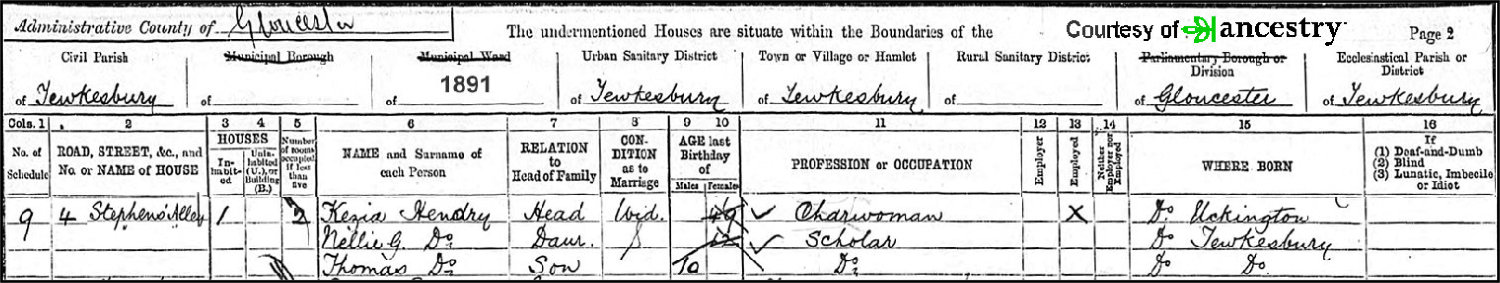 Administrative County of Gloucester The undermentioned Houses are situate within the Boundaries of the Courtesy of ancestry Page 2
Civil Parish Municipal Borough Municipal Ward Urban Sanitary District Town or Village or Hamlet Rural Sanitary District Parliamentary Borough or Division Ecclesiastical Parish or District
of Tewkesbury of of 1891 of Tewkesbury of Tewkesbury of of Gloucester of Tewkesbury
Cols. 1 2 3 4 5 6 7 8 9 10 11 12 13 14 15 16
No. of Schedule ROAD, STREET, &c., and No. or NAME of HOUSE HOUSES Inhabited Uninhabited (U.), or Building (B.) Number of rooms occupied if less than five NAME and Surname of each Person RELATION to Head of Family CONDITION as to Marriage AGE last Birthday of Males Females PROFESSION or OCCUPATION Employer Employed Neither Employer nor Employed WHERE BORN If (1) Deaf-and-Dumb (2) Blind (3) Lunatic, Imbecile or Idiot
9 4 Stephens' Alley 1 2 Kezia Hendry Head Wid. 49 Charwoman X Do Uckington
Nellie G. Do Daur. S 12 Scholar Do Tewkesbury
Thomas Do Son 10 Do Do Do